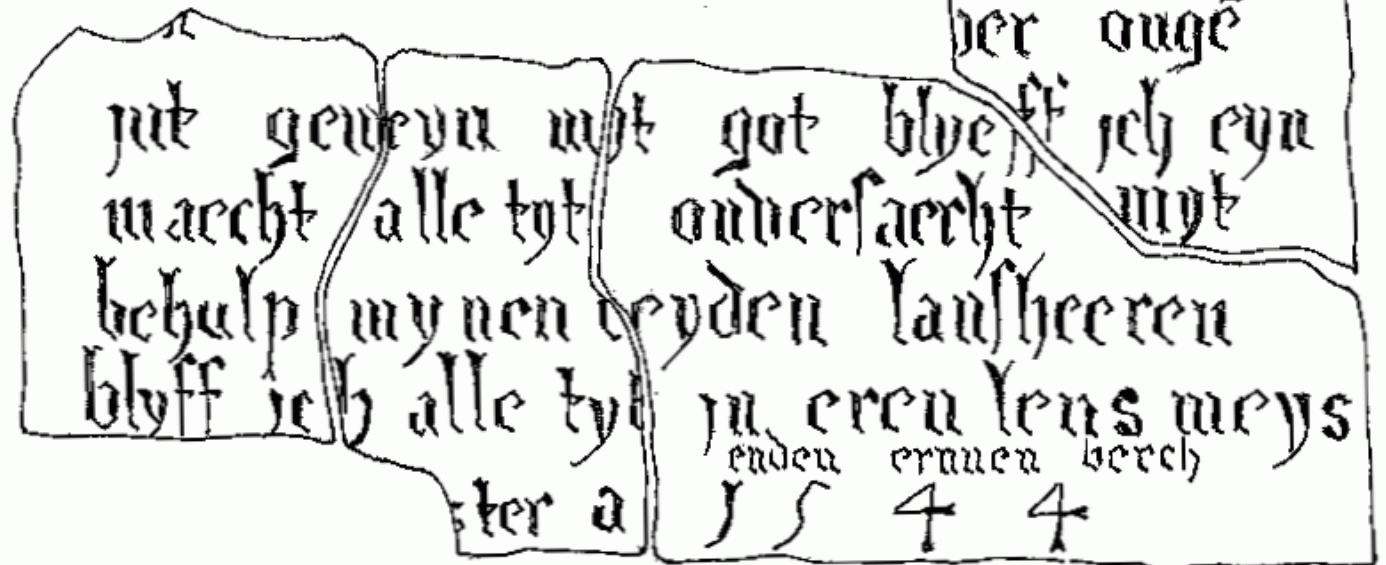 ver ougē
jnt gemeyn myt got blyeff jch eyn
maecht alle tyt onverſaecht myt
behulp mynen lanſheeren
blyff jch alle tyt jn eren lens meys
enden ernuen berch
ster a 1544